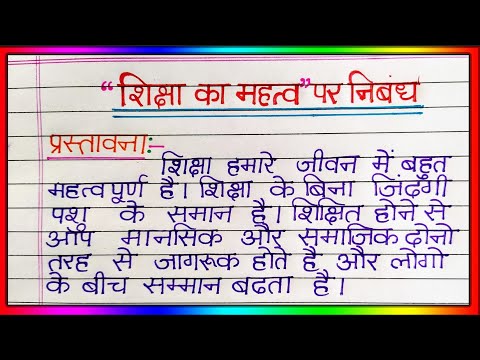 "शिक्षा का महत्व" पर निबंध
प्रस्तावना:-
शिक्षा हमारे जीवन में बहुत
महत्वपूर्ण है। शिक्षा के बिना जिंदगी
पशु के समान है। शिक्षित होने से
आप मानसिक और समाजिक दोनो
तरह से जागरूक होते है और लोगो
के बीच सम्मान बढता है।